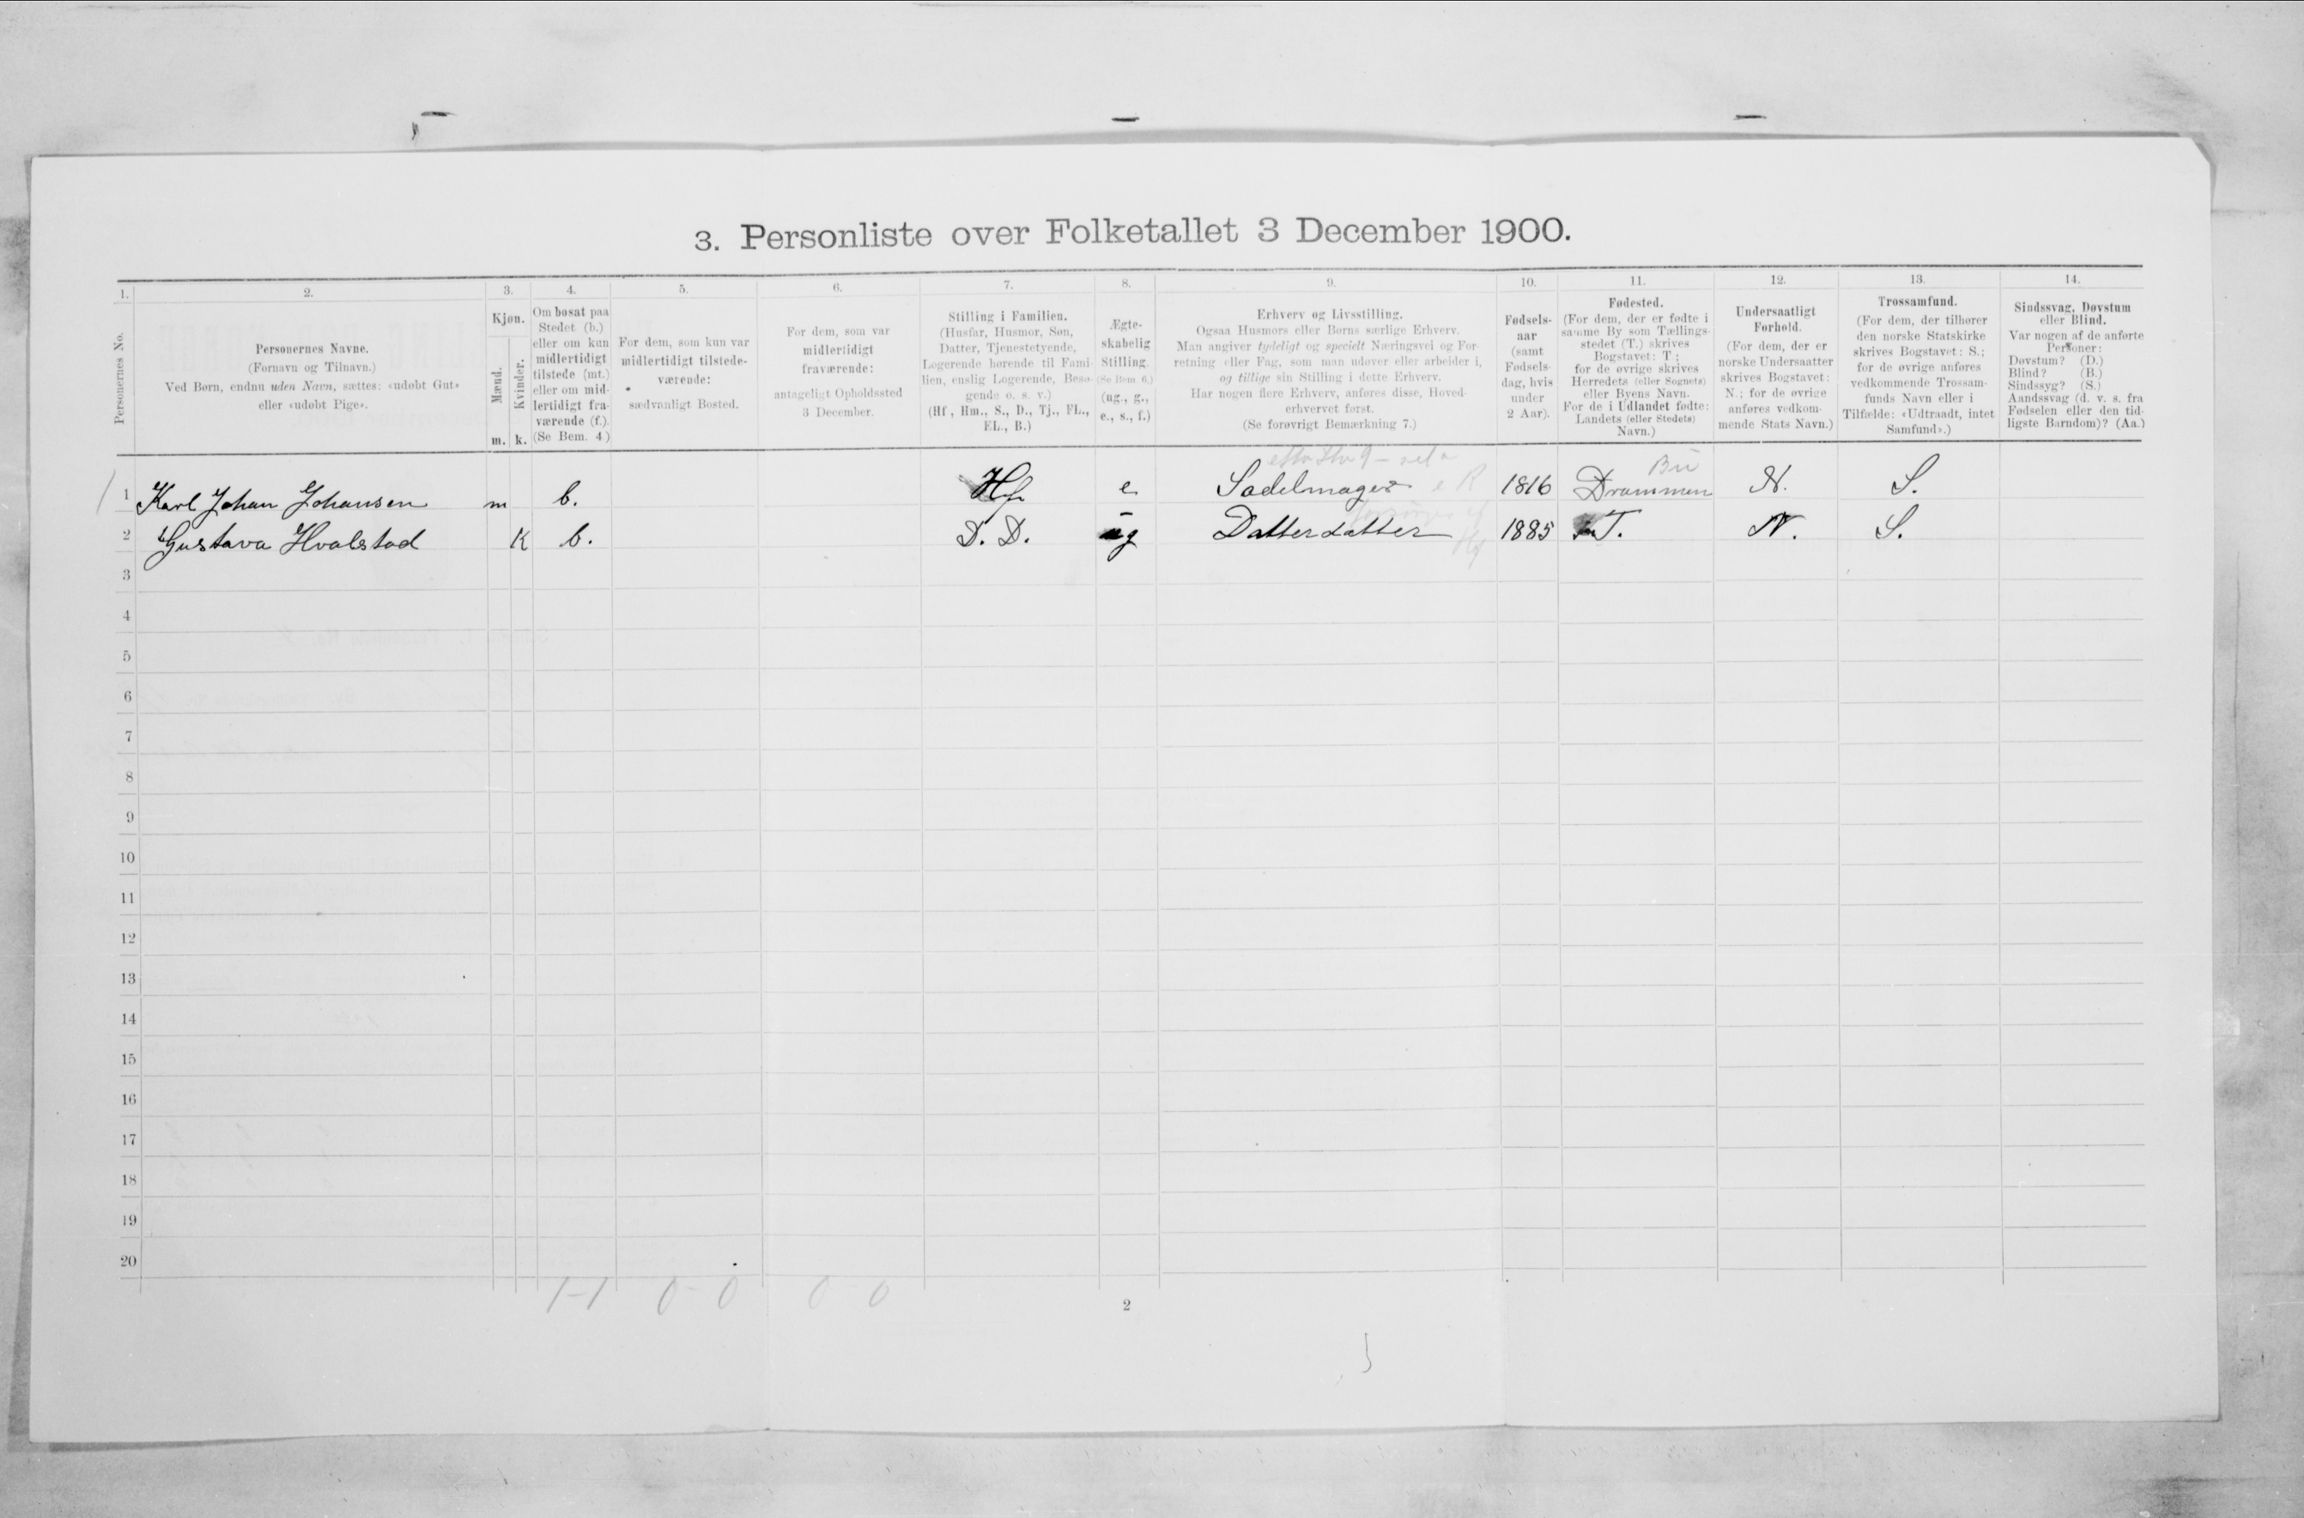 3. Personliste over Folketallet 3 December 1900.
1. 2. 3. 4. 5. 6. 7. 8. 9. 10. 11. 12. 13. 14.
Personernes No.
Personernes Navne.
(Fornavn og Tilnavn.)
Ved Børn, endnu uden Navn, sættes: «udøbt Gut»
eller «udøbt Pige».
Kjøn.
Mænd.
Kvinder.
m. k.
Om bosat paa
Stedet (b.)
eller om kun
midlertidigt
tilstede (mt.)
eller om mid-
lertidigt fra-
værende (f.).
(Se Bem. 4.)
For dem, som kun var
midlertidigt tilstede-
værende:
sædvanligt Bosted.
For dem, som var
midlertidigt
fraværende:
antageligt Opholdssted
3 December.
Stilling i Familien.
(Husfar, Husmor, Søn,
Datter, Tjenestetyende,
Logerende hørende til Fami-
lien, enslig Logerende, Besø-
gende o. s. v.)
(Hf., Hm., S., D., Tj., FL.,
EL., B.)
Ægte-
skabelig
Stilling.
(Se Bem. 6.)
(ug., g.,
e., s., f.)
Erhverv og Livsstilling.
Ogsaa Husmors eller Børns særlige Erhverv.
Man angiver tydeligt og specielt Næringsvei og For-
retning eller Fag, som man udøver eller arbeider i,
og tillige sin Stilling i dette Erhverv.
Har nogen flere Erhverv, anføres disse, Hoved-
erhvervet først.
(Se forøvrigt Bemærkning 7.)
Fødsels-
aar
(samt
Fødsels-
dag, hvis
under
2 Aar).
Fødested.
(For dem, der er fødte i
samme By som Tællings-
stedet (T.) skrives
Bogstavet: T;
for de øvrige skrives
Herredets (eller Sognets)
eller Byens Navn.
For de i Udlandet fødte:
Landets (eller Stedets)
Navn.)
Undersaatligt
Forhold.
(For dem, der er
norske Undersaatter
skrives Bogstavet:
N.; for de øvrige
anføres vedkom-
mende Stats Navn.)
Trossamfund.
(For dem, der tilhører
den norske Statskirke
skrives Bogstavet: S.;
for de øvrige anføres
vedkommende Trossam-
funds Navn eller i
Tilfælde: «Udtraadt, intet
Samfund».)
Sindssvag, Døvstum
eller Blind.
Var nogen af de anførte
Personer:
Døvstum? (D.)
Blind? (B.)
Sindssyg? (S.)
Aandssvag (d. v. s. fra
Fødselen eller den tid-
ligste Barndom)? (Aa.)
Bu
1 Karl Johan Johansen m b. Hf e Sadelmager e R 1816 Drammen N. S.
2 Gustava Hvalstad K b. D. D. ug Datterdatter Hf 1885 T. N. S.
3
4
5
6
7
8
9
10
11
12
13
14
15
16
17
18
19
20
1-1 0-0 0-0
2